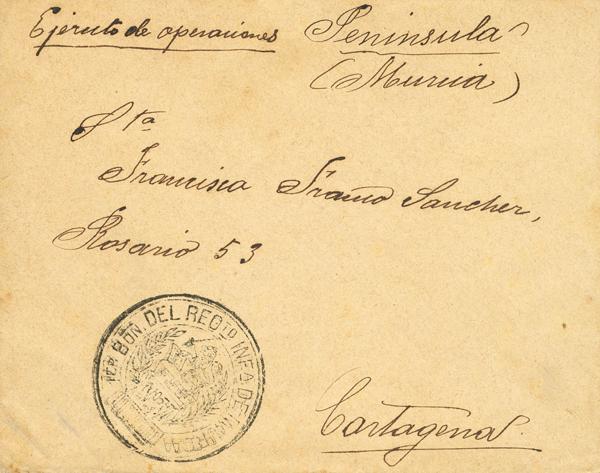 Ejército de operaciones
Peninsula
(Murcia)
Sta
Francisca Franco Sancher,
Rosario 53
1ER BÓN. DEL REGTO INFA DE
Cartagena.